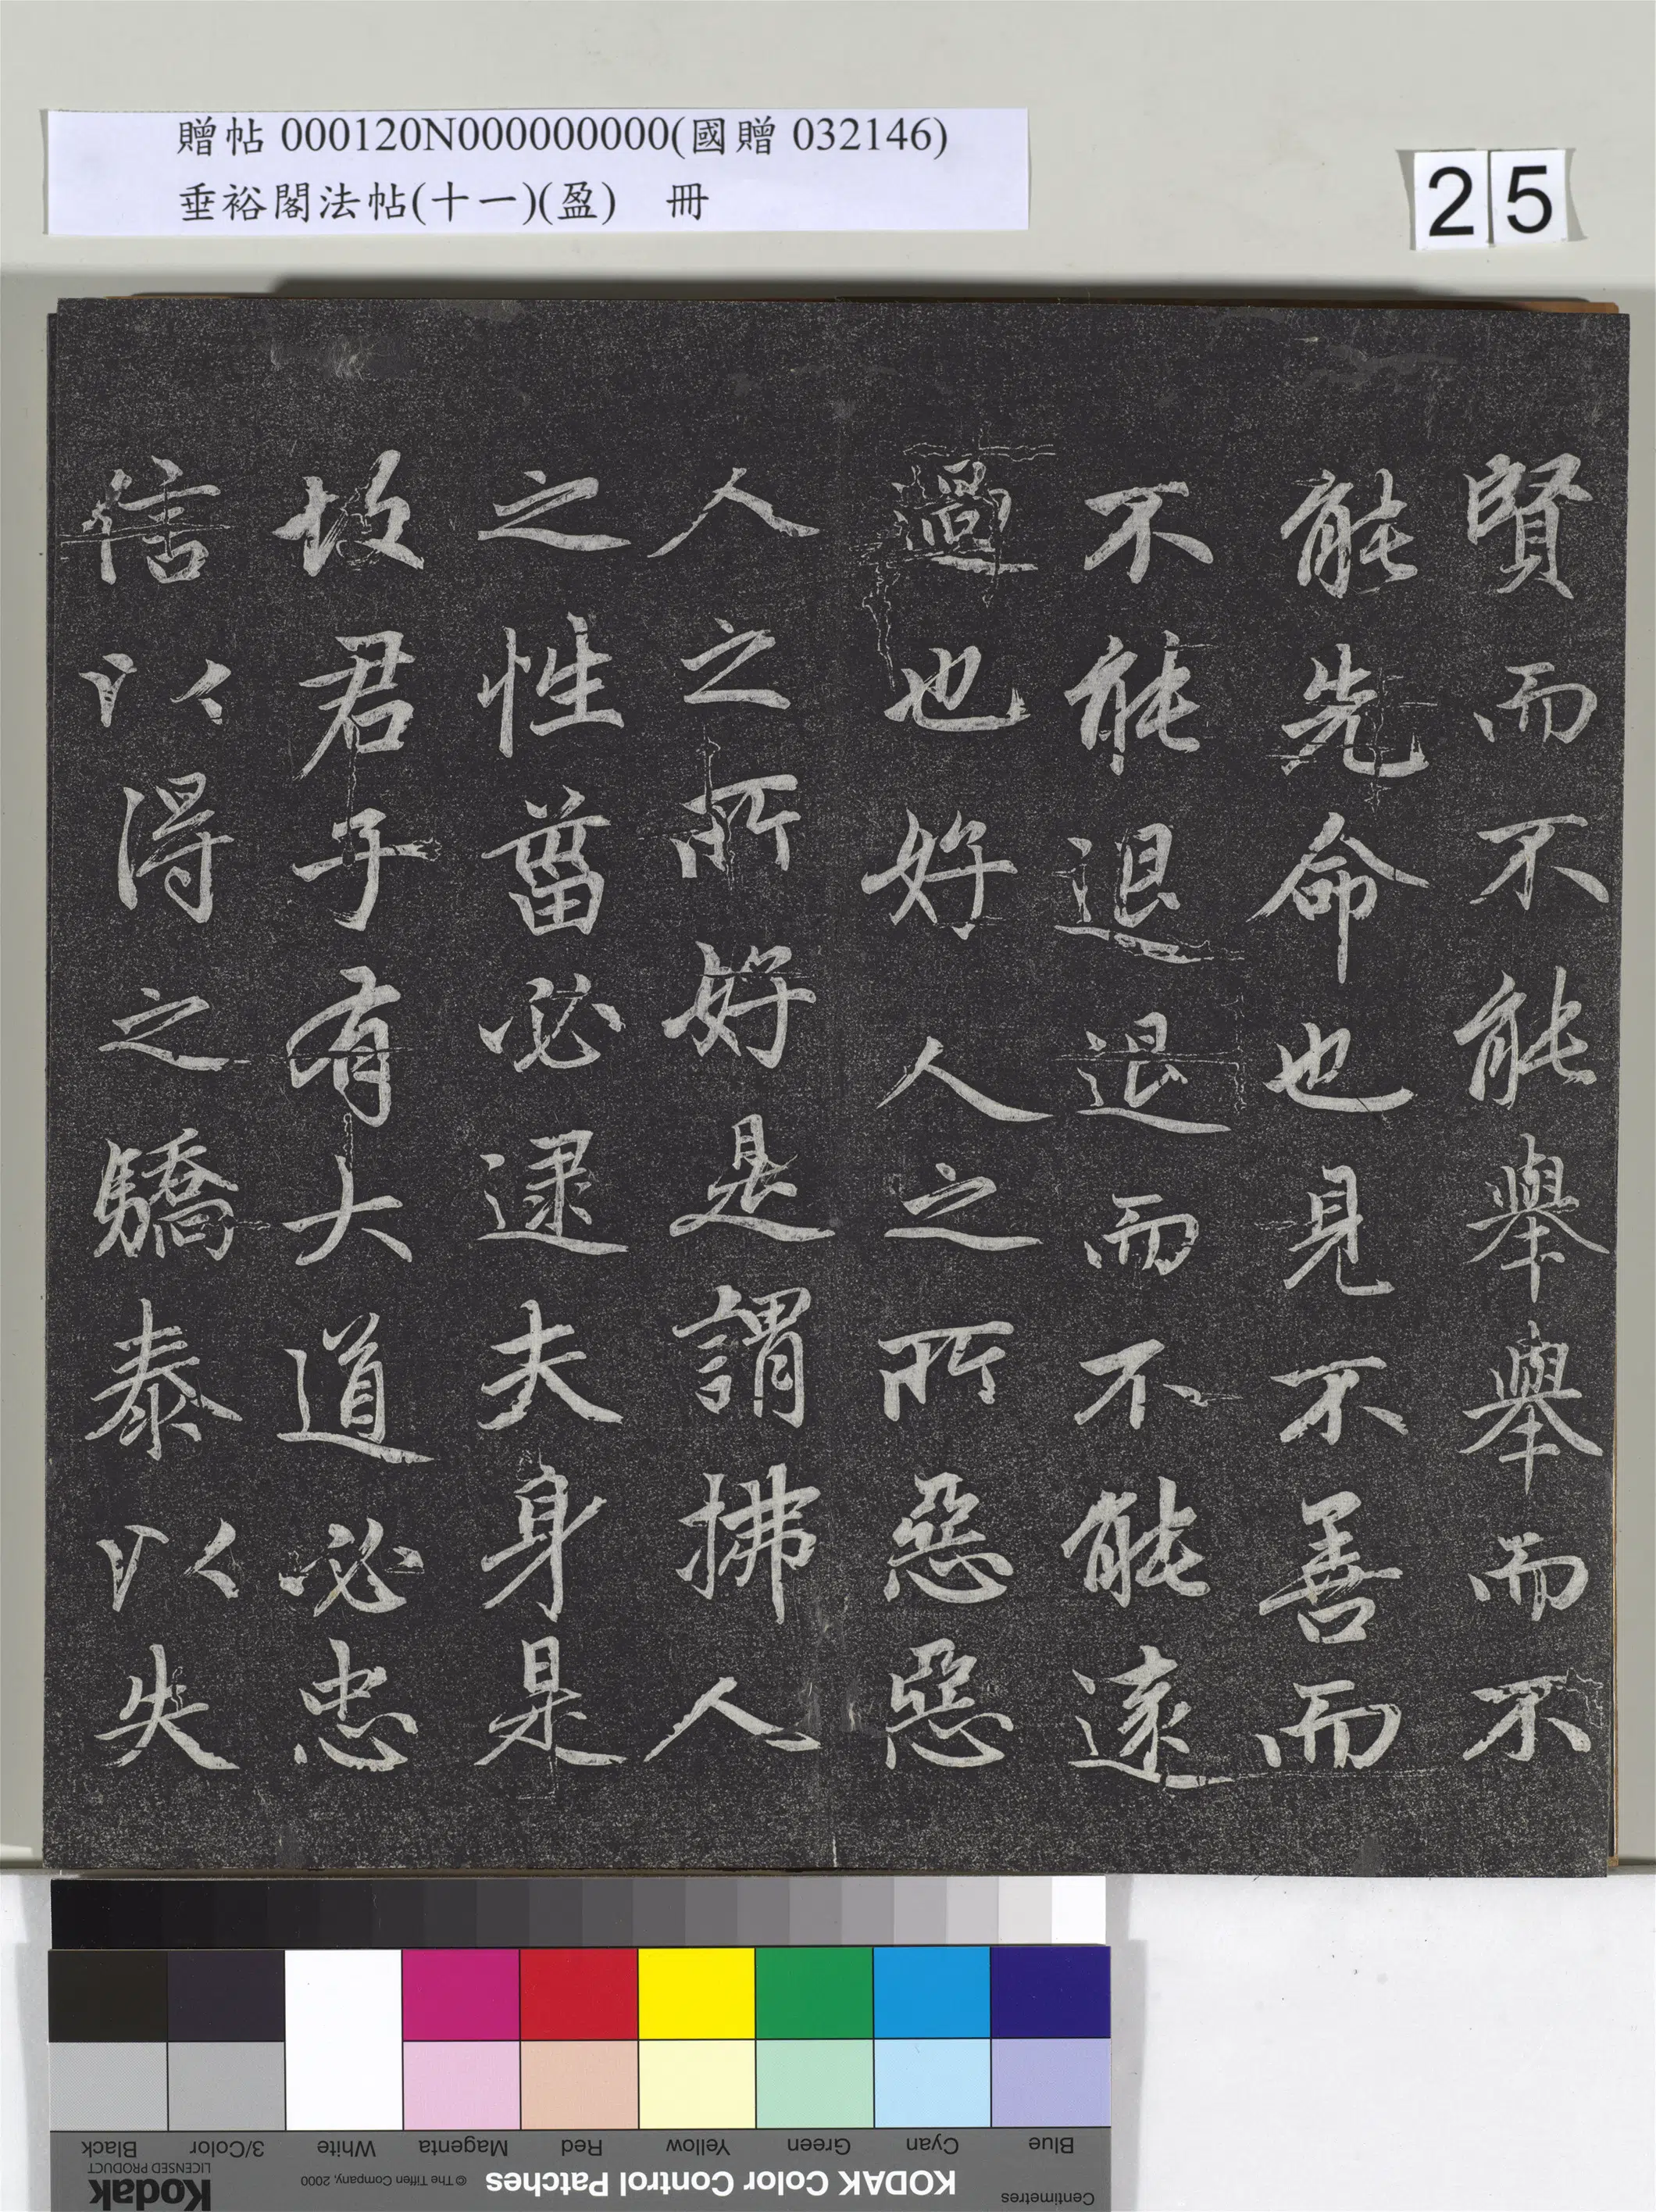 贈帖 000120N000000000(國贈 032146)
垂裕閣法帖(十一)(盈) 冊
25
賢而不能舉舉而不
能先命也見不善而
不能退退而不能遠
過也好人之所惡惡
人之所好是謂拂人
之性菑必逮夫身是
故君子有大道必忠
信以得之驕泰以失
Black
3/Color
White
Magenta
Red
Yellow
Green
Cyan
Blue
Kodak
LICENSED PRODUCT
© The Tiffen Company, 2000
KODAK Color Control Patches
Centimetres